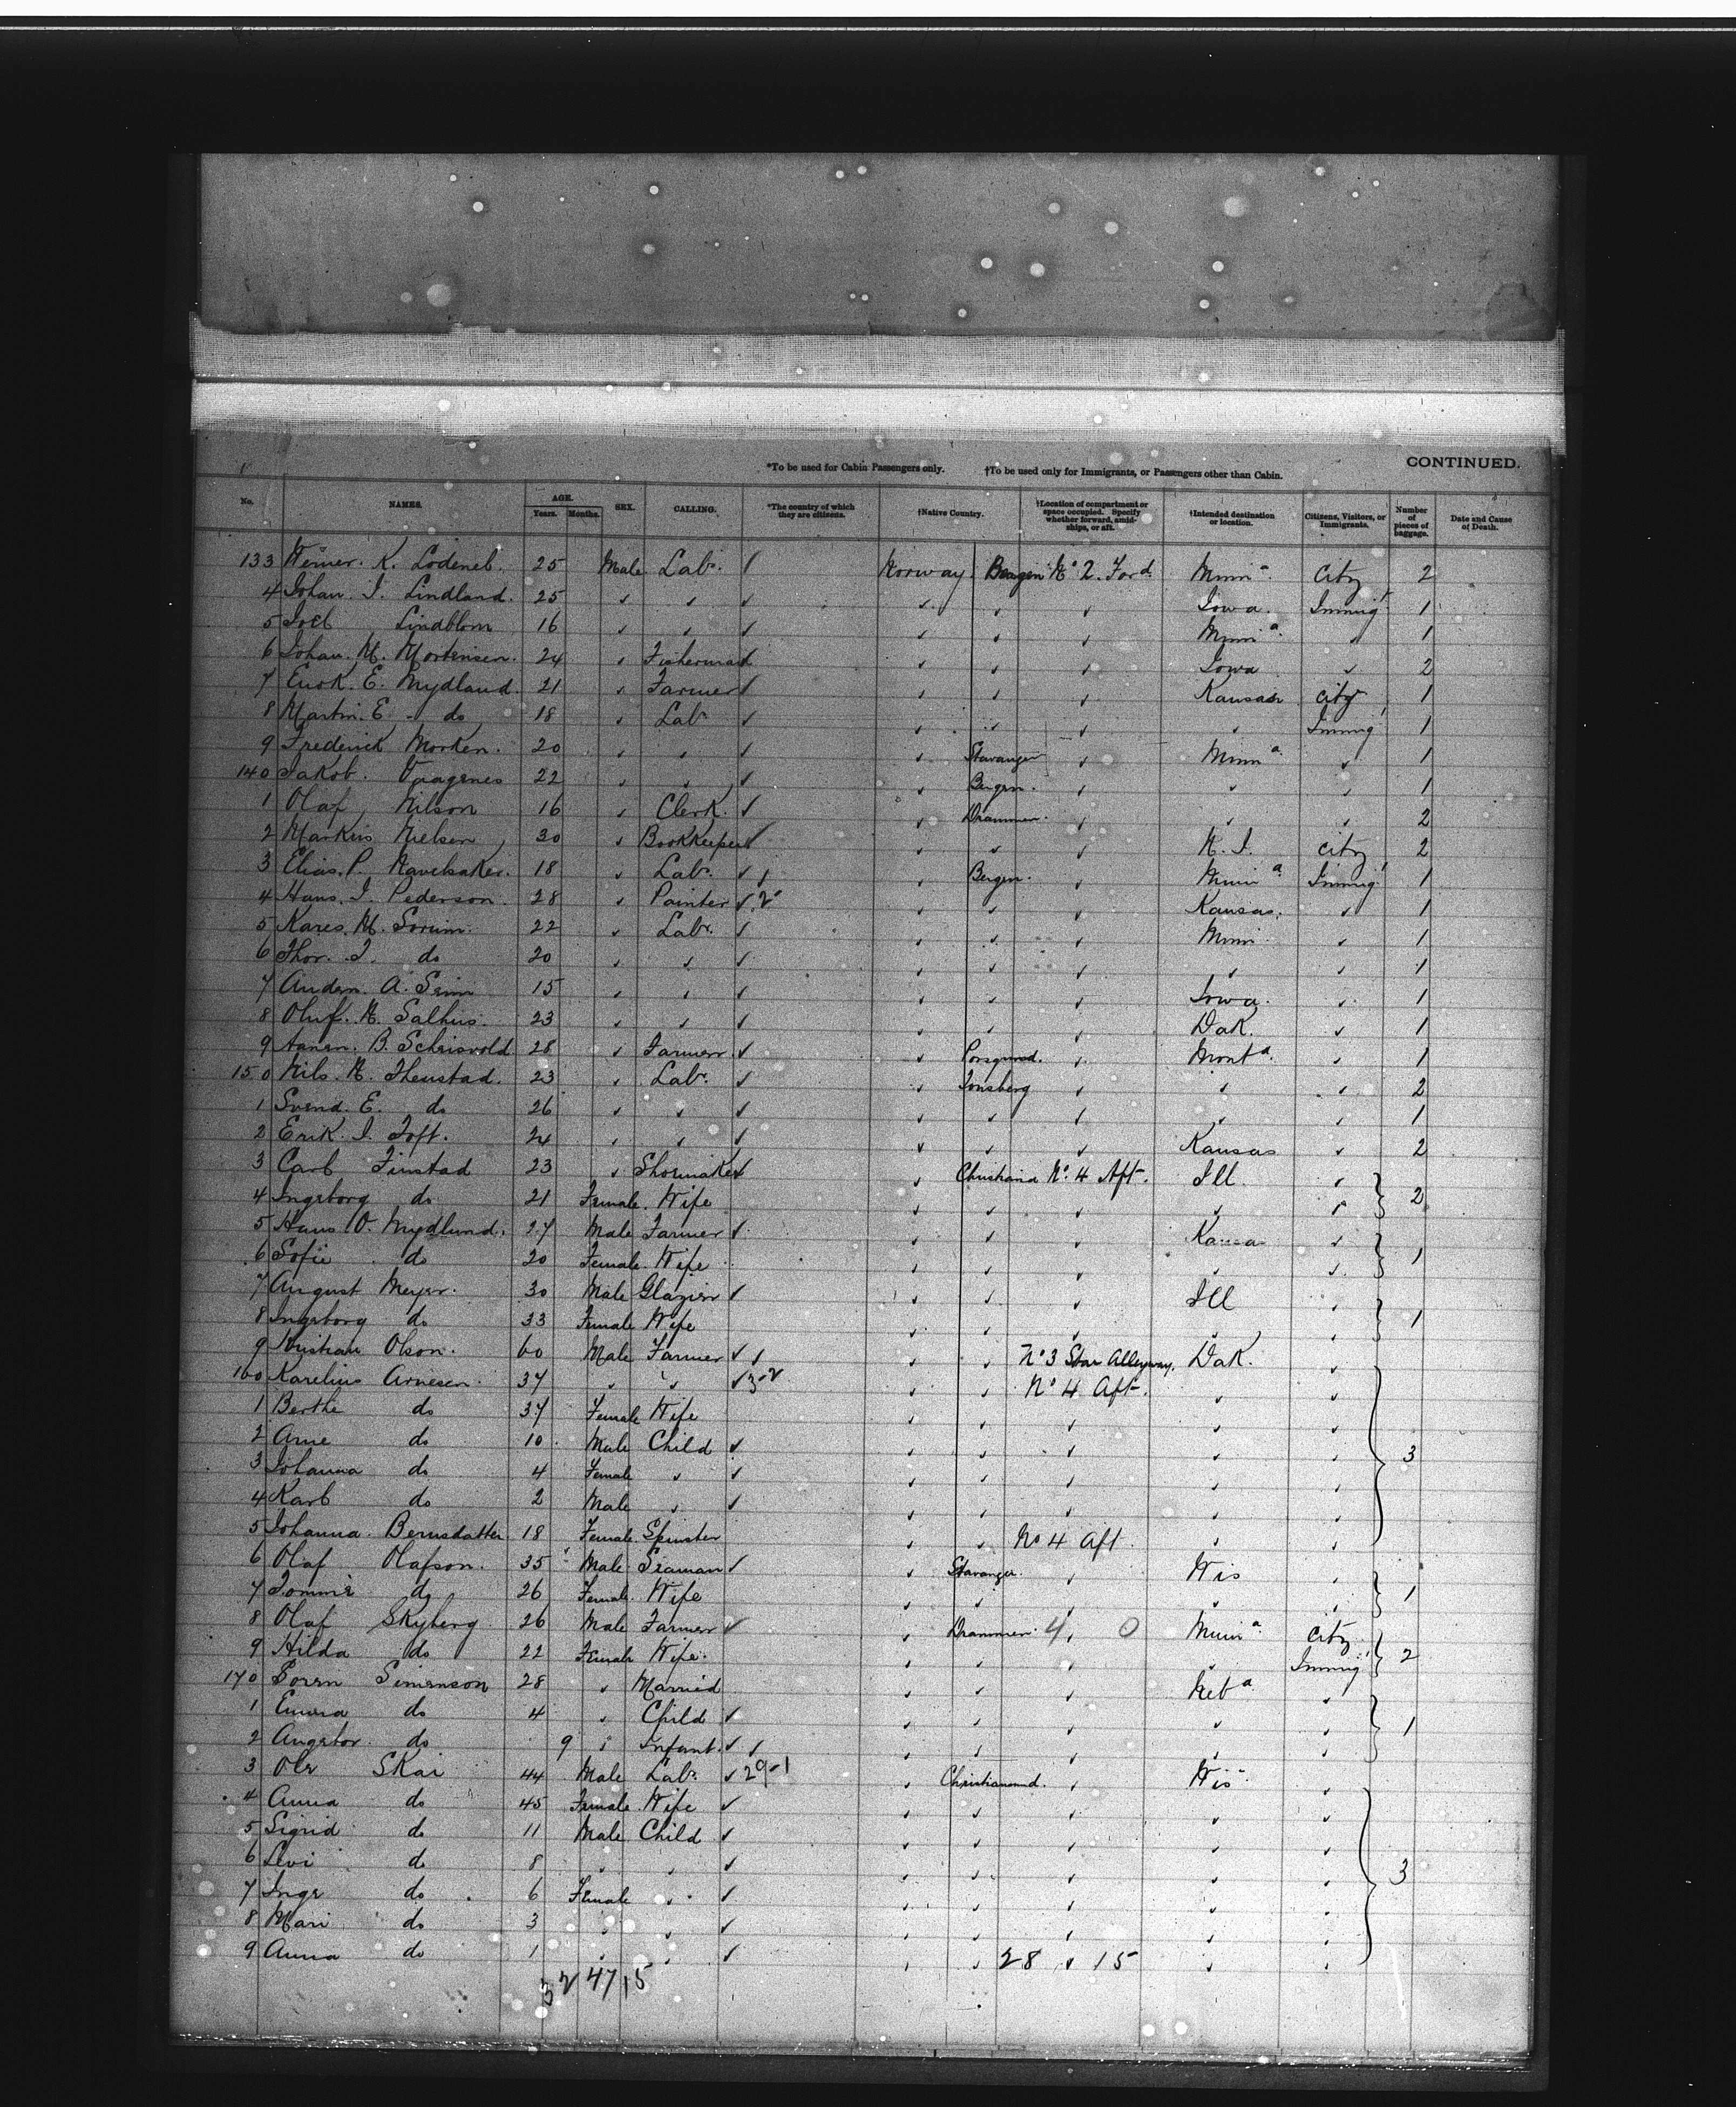 *To be used for Cabin Passengers only. †To be used only for Immigrants, or Passengers other than Cabin. CONTINUED.
No. NAMES. AGE. Years. Months. SEX. CALLING. *The country of which they are citizens. †Native Country. †Location of compartment or space occupied. Specify whether forward, amidships, or aft. †Intended destination or location. Citizens, Visitors, or Immigrants. Number of pieces of baggage. Date and Cause of Death.
133 Werner. K. Lodeneb. 25 Male Labr. Norway Bergen No 2. Ford. Minna City 2
4 Johan. I. Lindland. 25 Iowa. Immigt 1
5 Joel Lindblom 16 Minna. 1
6 Johan. M. Mortensen. 24 Fisherman Iowa 2
7 Enok. E. Mydland. 21 Farmer Kansas City 1
8 Martin. E. do 18 Labr Immigt 1
9 Frederick Morken. 20 Stavanger Minna 1
140 Jakob. Vaagenes 22 Bergen. 1
1 Olaf Nilson 16 Clerk. Drammen. 2
2 Markus Nielsen 30 Bookkeeper N. J. City 2
3 Elias. P. 18 Labr. Bergen. Minna Immigt 1
4 Hans. J. Pederson. 28 Painter 2 Kansas. 1
5 Kares. M. Sorum. 22 Labr. Minn 1
6 Thor. I. do 20 1
7 Andern. A. 15 Iowa. 1
8 Oluf. N. Salhus. 23 Dak. 1
9 B. Scheisvold 28 Farmer. Porsgrund. Monta. 1
150 Nils. N. Thenstad. 23 Labr. Tonsberg 2
1 Svend. E. do 26 1
2 Erik. I. Toft. 24 Kansas 2
3 Carl Finstad 23 Shoemaker Christiania No. 4 Aft. Ill.
4 Ingeborg do. 21 Female. Wife 2
5 Hans O. Mydlund. 27 Male Farmer Kansas
6 Sofie do 20 Female. Wife 1
7 August Meyer. 30 Male Glazier Ill
8 Ingeborg do 33 Female Wife 1
9 Kristian Olson. 60 Male Farmer No 3 Star Alleyway. Dak.
160 Karelius Arnesen. 37 3-2 No 4 Aft.
1 Berthe do 37 Female Wife
2 Arne do 10 Male Child 3
3 Johanna do 4 Female
4 Karl do 2 Male
5 Johanna. Bernsdatter 18 Female. Spinster No 4 Aft.
6 Olaf Olafson. 35 Male Seaman Stavanger. Wis
7 Tommie do 26 Female. Wife 1
8 Olaf Skyberg 26 Male Farmer Drammen. 4 0 Minna City
9 Hilda do 22 Female Wife. Immigt 2
170 Soren Simenson 28 Married Neba
1 Emma do 4 Child 1
2 do 9 Infant.
3 Ole Skai 44 Male Labr. 29-1 Christiansand. Wis.
4 Anna do 45 Female. Wife
5 Sigrid do 11 Male Child
6 Levi do 8 3
7 Inge do 6 Female
8 Mari do 3
9 Anna do 1 28 15
32 47 15